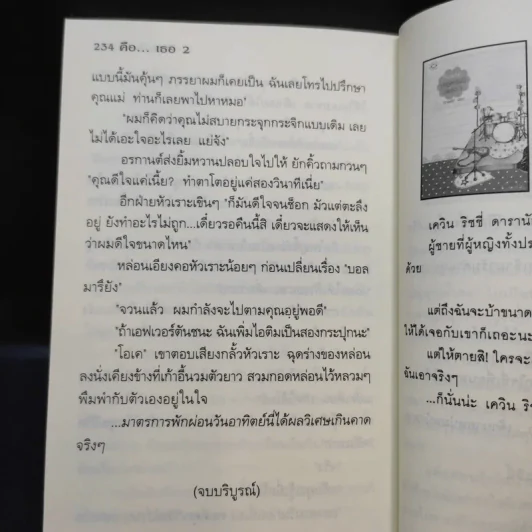 234 คือ... เธอ 2
แบบนี้มันคุ้นๆ ภรรยาผมก็เคยเป็น ฉันเลยโทรไปปรึกษา
คุณแม่ ท่านก็เลยพาไปหาหมอ"
"ผมก็คิดว่าคุณไม่สบายกระจุกกระจิกแบบเดิม เลย
ไม่ได้เอะใจอะไรเลย แย่จัง"
อรกานต์ส่งยิ้มหวานปลอบใจไปให้ ยักคิ้วถามกวนๆ
"คุณดีใจแค่เนี้ย? ทำตาโตอยู่แค่สองวินาทีเนี่ย"
อีกฝ่ายหัวเราะเขินๆ "ก็มันดีใจจนช็อก มัวแต่ตะลึง
อยู่ ยังทำอะไรไม่ถูก...เดี๋ยวรอคืนนี้สิ เดี๋ยวจะแสดงให้เห็น
ว่าผมดีใจขนาดไหน"
หล่อนเอียงคอหัวเราะน้อยๆ ก่อนเปลี่ยนเรื่อง "บอล
มารึยัง"
"จวนแล้ว ผมกำลังจะไปตามคุณอยู่พอดี"
"ถ้าเอฟเวอร์ตันชนะ ฉันเพิ่มไอติมเป็นสองกระปุกนะ"
"โอเค" เขาตอบเสียงกลั้วหัวเราะ ฉุดร่างของหล่อน
ลงนั่งเคียงข้างที่เก้าอี้นวมตัวยาว สวมกอดหล่อนไว้หลวมๆ
พึมพำกับตัวเองอยู่ในใจ
...มาตรการพักผ่อนวันอาทิตย์นี่ได้ผลวิเศษเกินคาด
จริงๆ
(จบบริบูรณ์)
เควิน ริชชี่ ดารานั
ผู้ชายที่ผู้หญิงทั้งปร
ด้วย
แต่ถึงฉันจะบ้าขนาด
ให้ได้เจอกับเขาก็เถอะนะ
แต่ให้ตายสิ! ใครจะ
ฉันเอาจริงๆ
...ก็นั่นน่ะ เควิน ริ